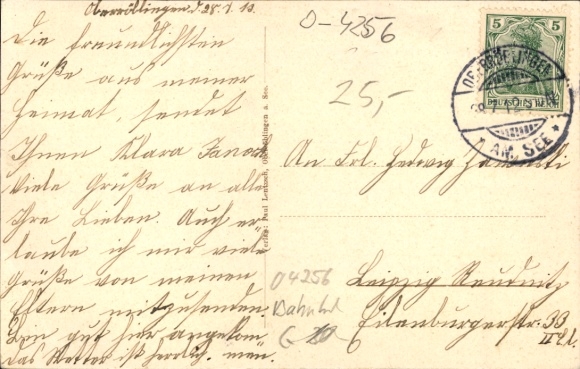 Oberröblingen d. 28.7.10.
Die freundlichsten
Grüße aus meiner
Heimat, sendet
Ihnen Klara
Viele Grüße an alle
Ihre Lieben. Auch er-
laube ich mir viele
Grüße von meinen
Eltern mitzusenden.
Bin gut hier angekom
das Wetter ist herrlich. men.
Verlag: Paul Oberröblingen a. See.
0-4256
25,-
5
DEUTSCHES REICH
OBERRÖBLINGEN
AM SEE
An Frl. Hedwig
Leipzig Reudnitz
Eilenburgerstr. 33
II
04256
Bahnhof